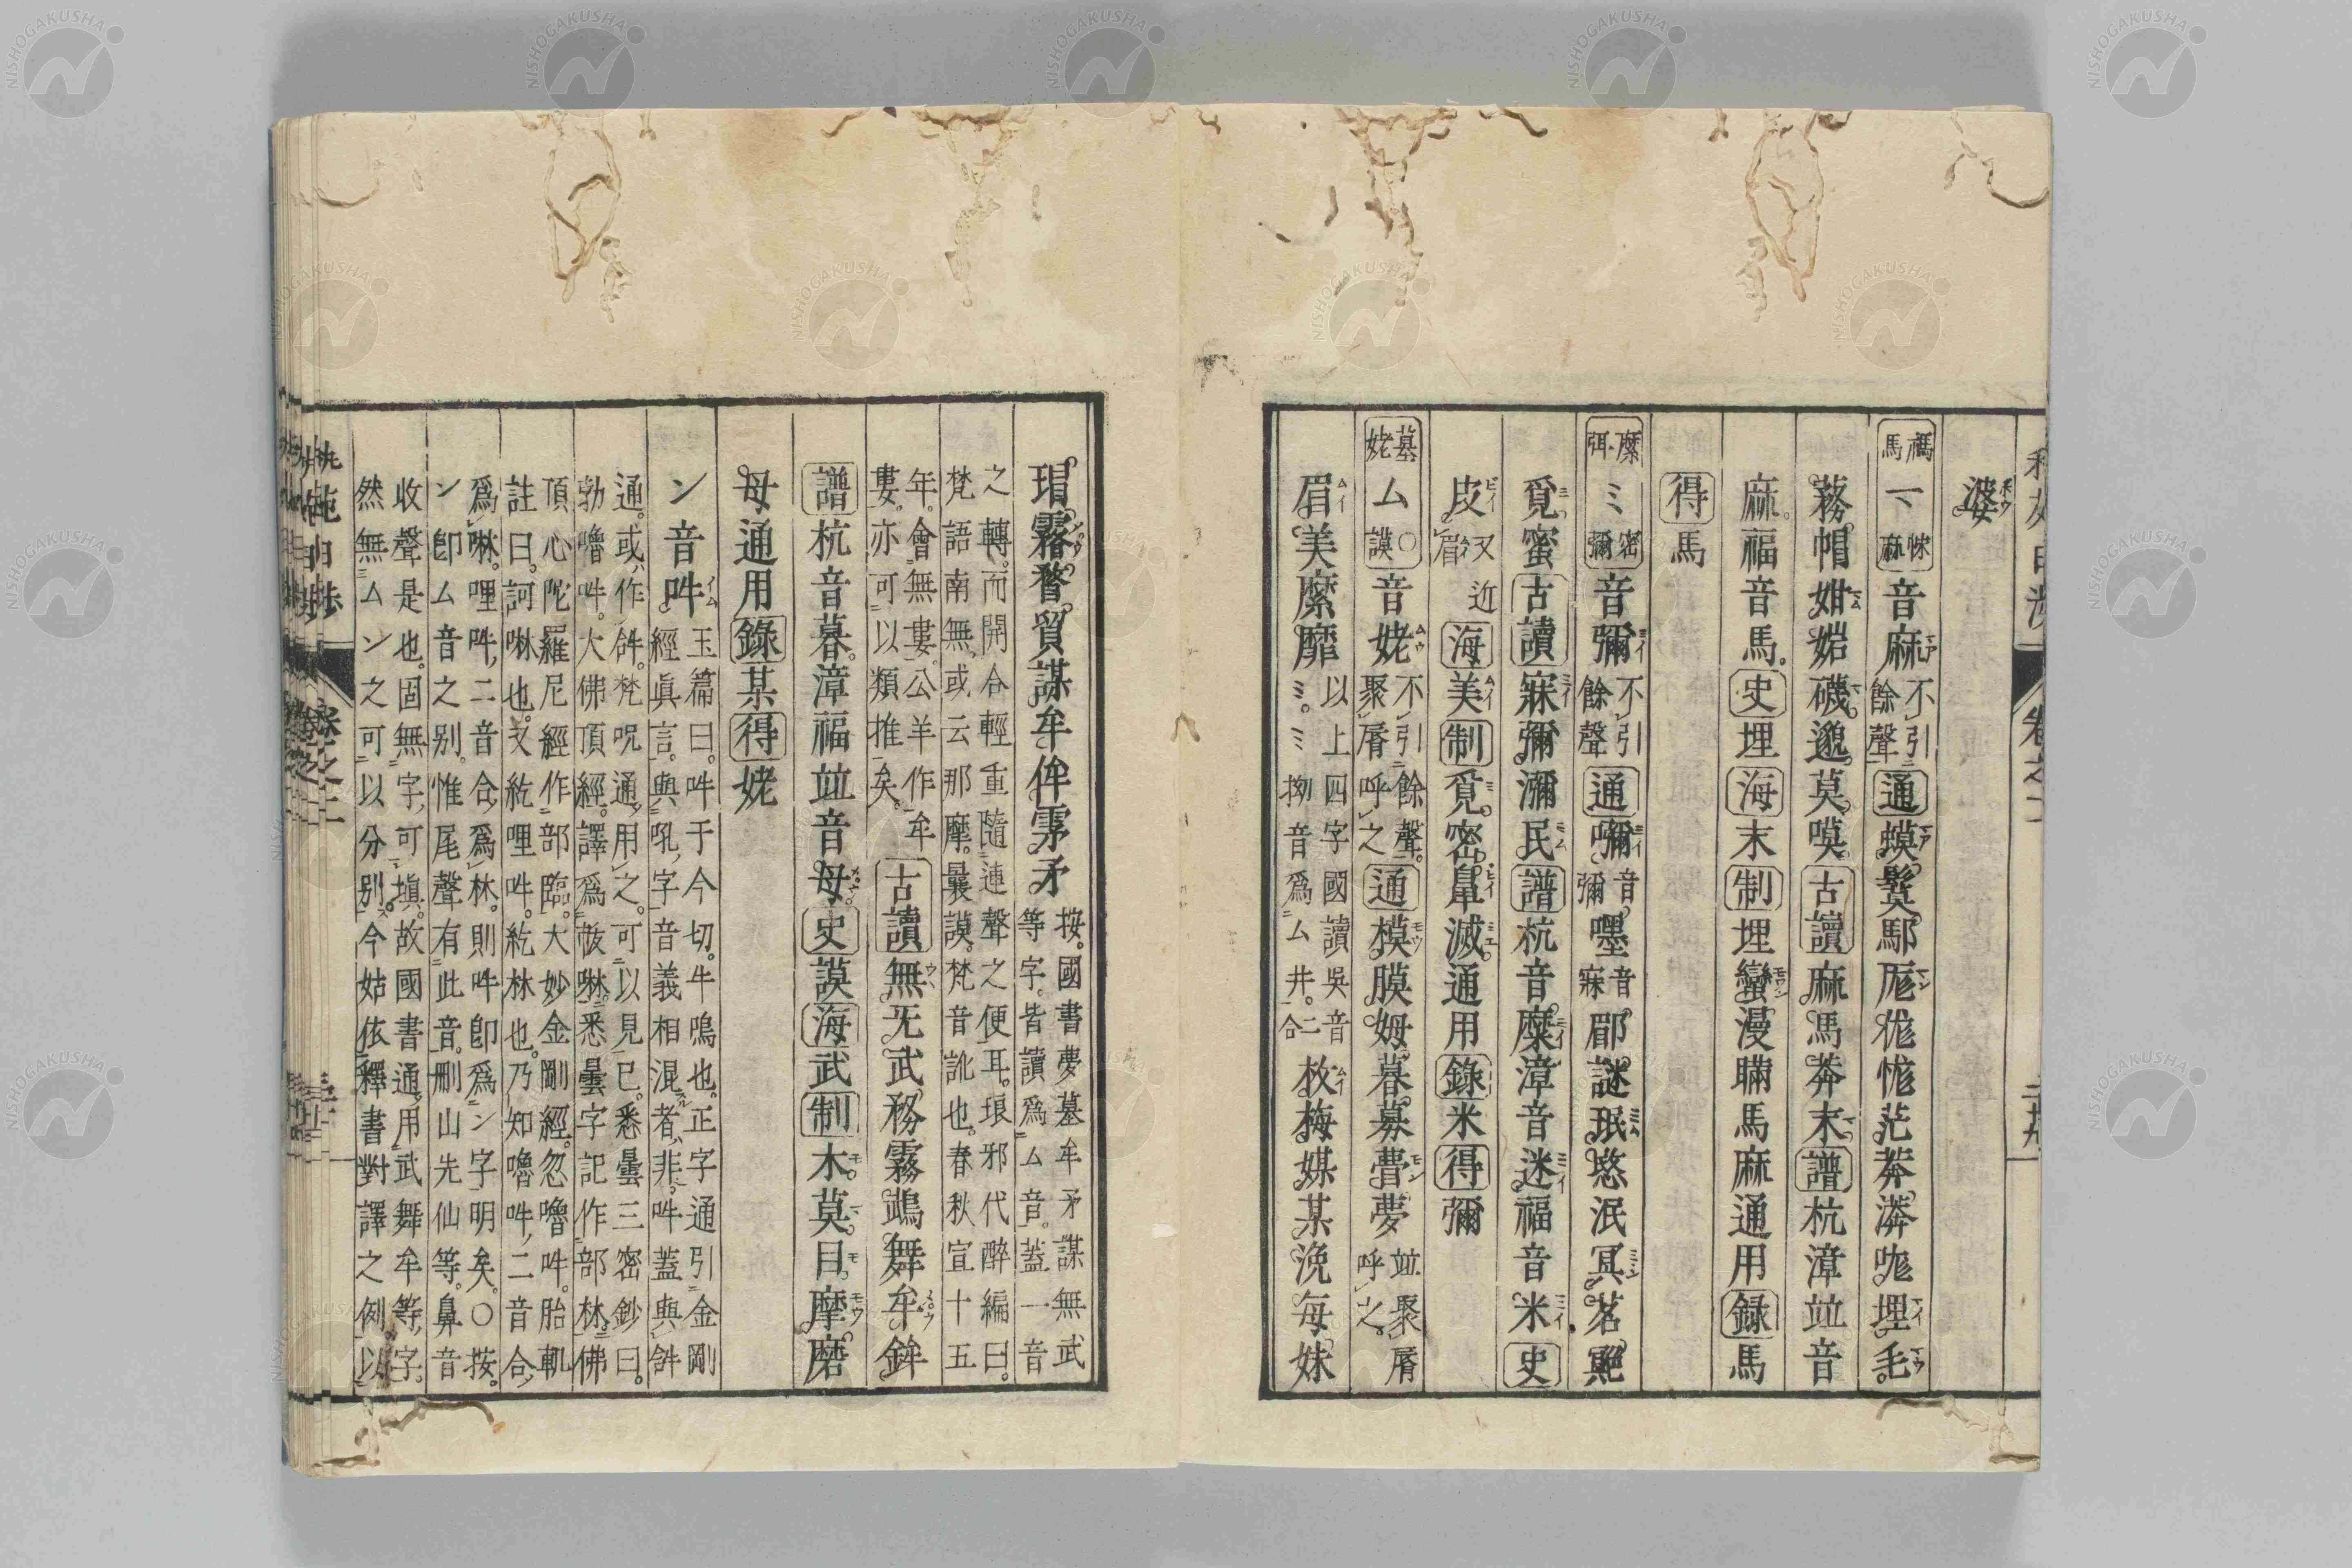 婆
禡馬 マ 㤥麻 音麻 不引餘聲 通 蟆 鬕 厖 牻 㤶 茫 莽 漭 哤 埋 毛
霧帽姏姤礣邈莫嗼 古讀 麻馮莽末 譜 杭漳竝音
麻福音馬 史 埋 海 末 制 埋蠻漫瞞馬麻通用 録 馬
得 馬
縻弭 ミ 密彌 音彌 不引餘聲 通 嚰 音彌 嚜 音寐 郿謎珉慜泯冥茗
覓蜜 古讀 寐彌瀰民 譜 杭音糜漳音迷福音米 史
皮 又近眉 海 美 制 覓密鼻滅通用 錄 米 得 彌
墓姥 ム 〇謨 音姥 不引餘聲聚脣呼之 通 模膜姆暮募瞢夢 竝聚脣呼之
眉美縻靡 以上四字國讀吳音ミ。ミ拗音爲ム井二合 枚梅媒某浼每妹
瑁霧瞀貿謀牟侔雺矛 按。國書夢墓牟矛謀無武等字。皆讀爲ム音。蓋一音
之轉。而開合輕重隨連聲之便耳。琅邪代醉編曰。梵語南無,或云那摩。曩謨。梵音訛也。春秋宣十五
年。會無婁。公羊作牟婁。亦可以類推矣。 古讀 無无武務霧鵡舞牟鉾
譜 杭音暮。漳福竝音母 史 謨 海 武 制 木莫目摩磨
母通用 錄 某 得 姥
ン 音吽 玉篇曰。吽于今切。牛鳴也。正字通引金剛經眞言。與吼字音義相混者,非。吽蓋與䛀
通。或作䛀。梵呪通用之。可以見已。悉曇三密鈔曰。勃嚕吽。大佛頂經。譯爲㪍啉。悉曇字記作部林。佛
頂心陀羅尼經作部臨。大妙金剛經。忽嚕吽。胎軌註曰。訶啉也。又紇哩吽。紇林也。乃知嚕吽,二音合,
爲啉。哩吽,二音合,爲林。則吽卽爲ン字明矣。〇按。ン卽ム音之別。惟尾聲有此音。刪山先仙等。鼻音
收聲是也。固無字,可塡。故國書通用武舞牟等,字。然無ムン之可以分別。今姑依釋書對譯之例。以